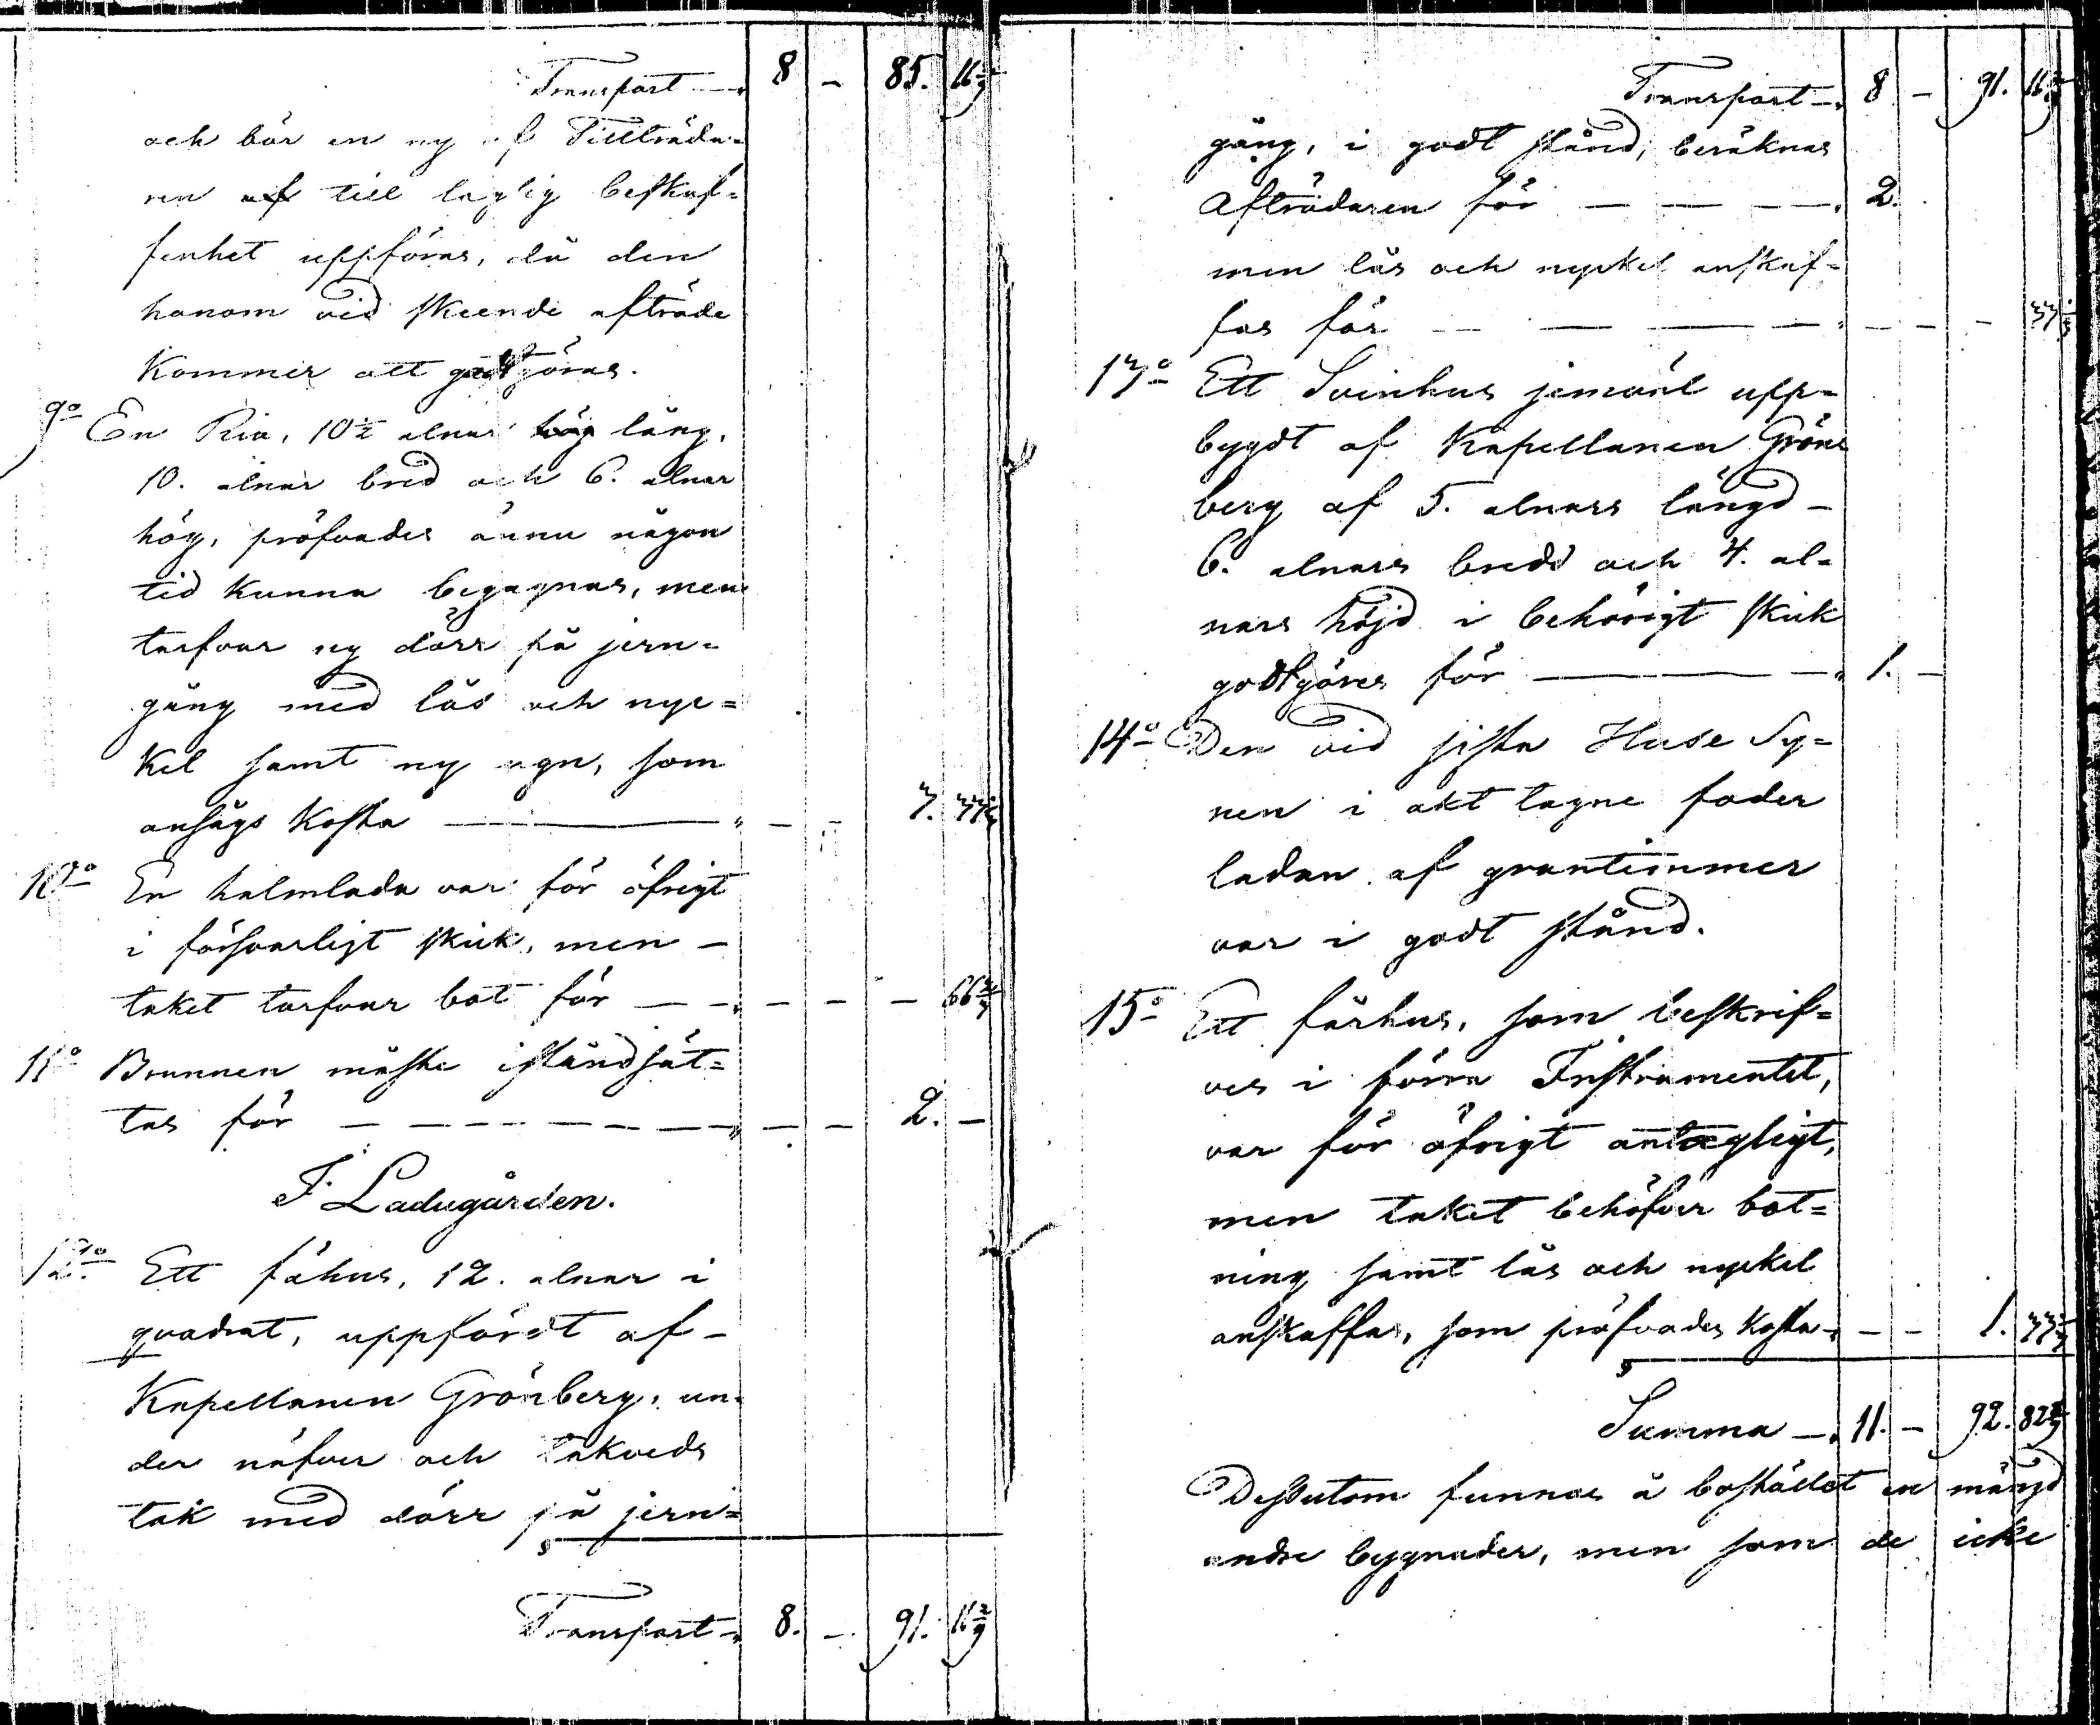 Transport — 8 – 85. 11 2/9
och bör en ny af Tillträda-
ren till laglig beskaf-
fenhet uppföras, då den
honom vid skeende afträde
kommer att godtgöras.
9o En Ria, 10 1/2 alnar lång,
10. alnar bred och 6. alnar
hög, pröfvades ännu någon
tid kunna begagnas, men
tarfvar ny dörr på jern-
gång med lås och nyc-
kel samt ny ugn, som
ansågs kosta — „ – – 3. 33 1/3
10o En halmlada var för öfrigt
i försvarligt skick, men –
taket tarfvar bot för — „ – – – 66 2/3
11o Brunnen måste iståndsät-
tas för — „ – – 2. –
I Ladugården.
12o Ett fähus, 12. alnar i
quadrat, uppfördt af –
Kapellanen Grönberg, un-
der näfver och takveds
tak med dörr på jern-
Transport „ 8. – 91. 11 2/9
Transport „ 8 – 91. 11 2/9
gång, i godt stånd, beräknas
Afträdaren för — „ 2.
men lås och nyckel anskaf-
fas för — – – – 33 1/3
13o Ett Svinhus jemväl upp-
bygdt af Kapellanen Grön-
berg af 5. alnars längd –
6. alnars bredd och 4. al-
nars höjd i behörigt skick
godtgöres för — „ 1. –
14o Den vid sista Huse Sy-
nen i akt tagne foder
ladan af grantimmer
var i godt stånd.
15o Ett fårhus, som beskrif-
ves i förra Instrumentet,
var för öfrigt antagligt,
men taket behöfver bot-
ning samt lås och nyckel
anskaffas, som pröfvades kosta „ – – 1. 33 1/3
Summa — „ 11. – 92. 82 2/9
Dessutom funnos å bostället en mängd
andre bygnader, men som de icke